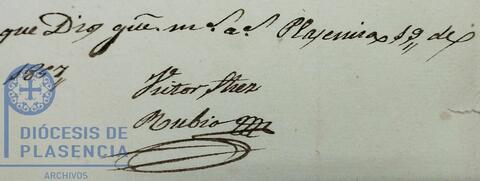 que Dios gũe. m.s a.s Plasencia 19 de
1857
Victor Saez
Rubio
DIÓCESIS DE
PLASENCIA
ARCHIVOS